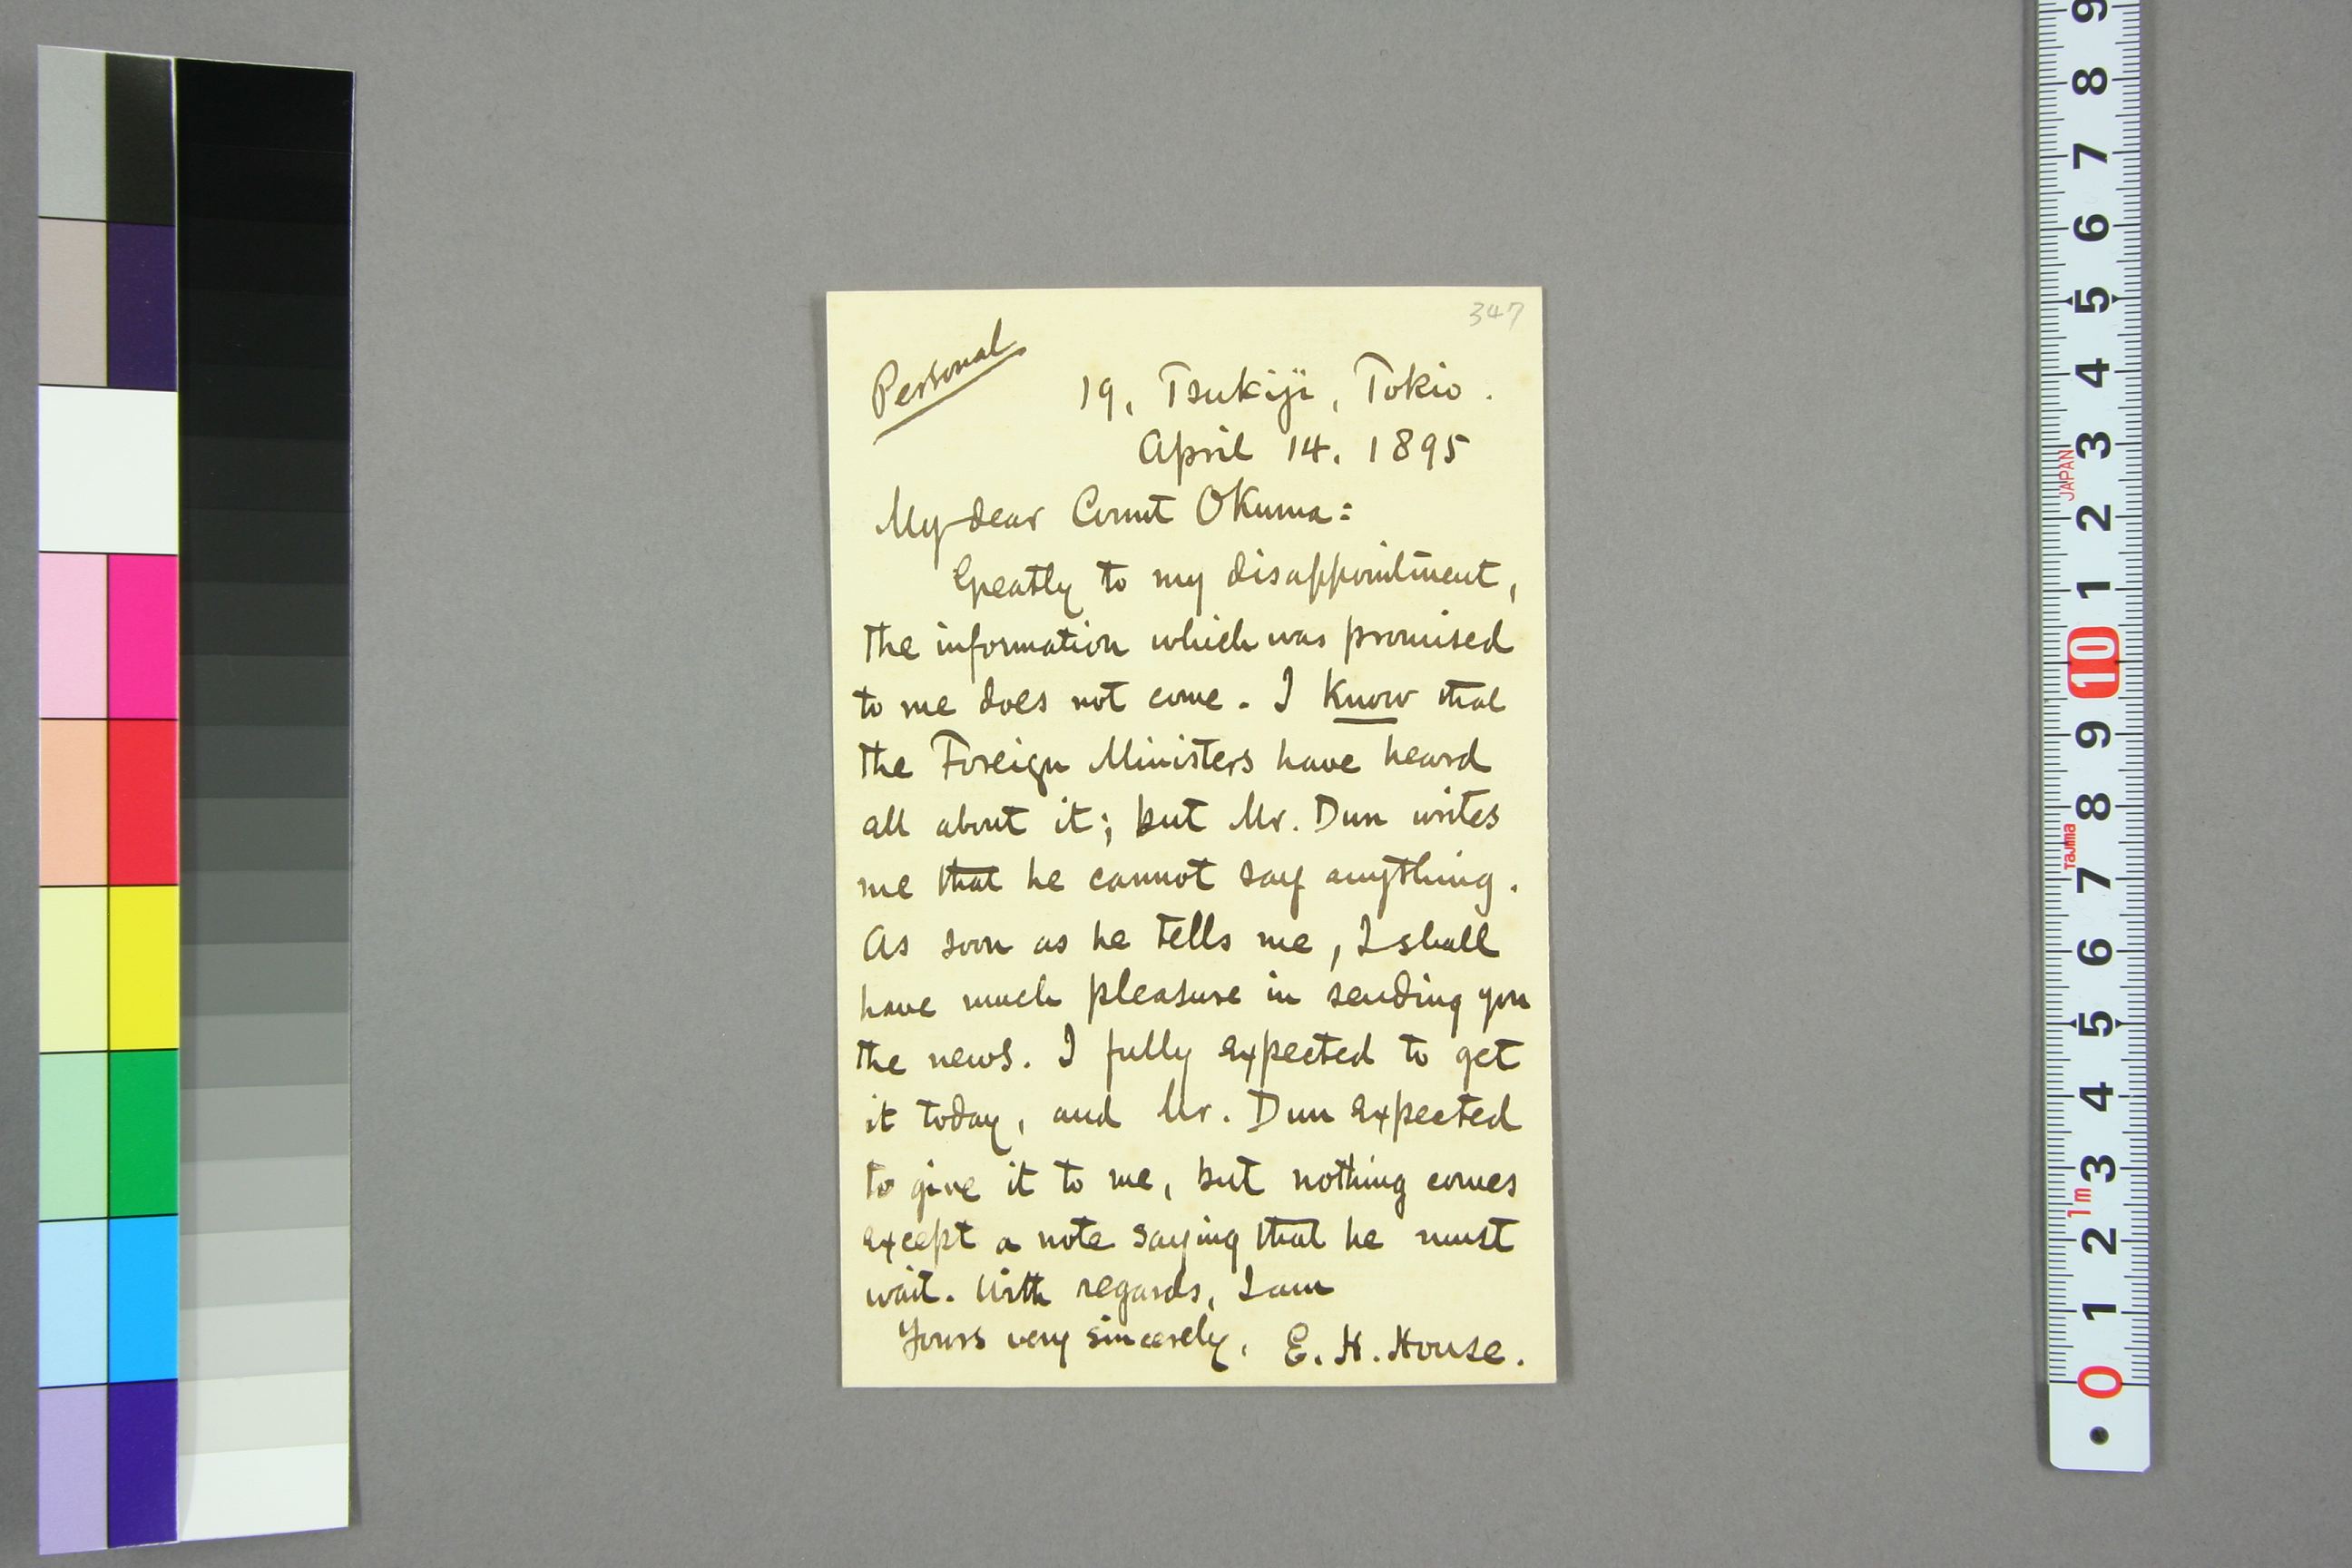 347
Personal
19, Tsukiji, Tokio.
April 14, 1895
My dear Count Okuma:
Greatly to my disappointment,
the information which was promised
to me does not come. I know that
the Foreign Ministers have heard
all about it; but Mr. Dun writes
me that he cannot say anything.
As soon as he tells me, I shall
have much pleasure in sending you
the news. I fully expected to get
it today, and Mr. Dun expected
to give it to me, but nothing comes
except a note saying that he must
wait. With regards, I am
Yours very sincerely, E. H. House.
9
8
7
6
5
4
3
JAPAN
2
1
10
9
8
Tajima
7
6
5
4
3
1m
2
1
0